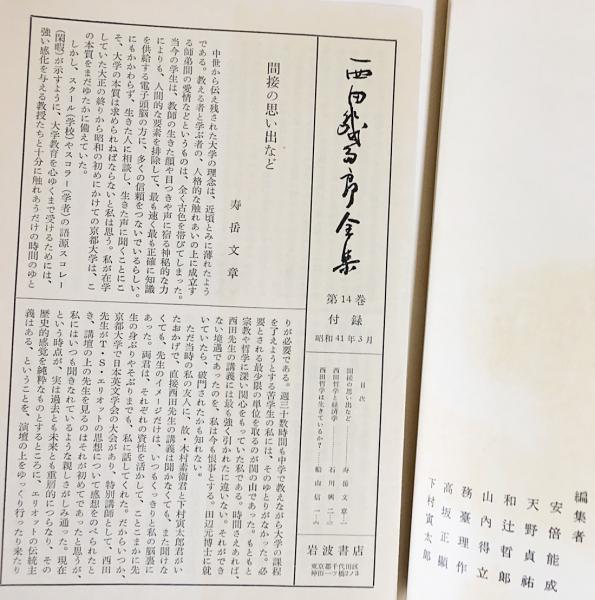 西田幾多郎全集
第14巻
付録
昭和41年3月
目次
間接の思い出など……寿岳文章…一
西田哲学と経済学……石川興二…三
西田哲学は生きているか?……船山信一…六
岩波書店
東京都千代田区
神田一ツ橋2ノ3
間接の思い出など
寿岳文章
中世から伝え残された大学の理念は、近頃とみに薄れたよう
である。教える者と学ぶ者の、人格的な触れあいの上に成立す
る師弟間の愛情などというものは、全く古色を帯びてしまった。
当今の学生は、教師の生きた顔や目つきや声に宿る神秘的な力
によりも、人間的な要素を排除して、最も速く最も正確に知識
を供給する電子頭脳の方に、多くの信頼をつないでいるらしい。
にもかかわらず、生きた人に相談し、生きた声に聞くことにこ
そ、大学の本質は求められねばならないと私は思う。私が在学
していた大正の終りから昭和の初めにかけての京都大学は、こ
の本質をまだゆたかに備えていた。
しかし、スクール(学校)やスコラー(学者)の語源スコレー
(閑暇)が示すように、大学教育を心ゆくまで受けるためには、
強い感化を与える教授たちと十分に触れあうだけの時間のゆと
りが必要である。週三十数時間も中学で教えながら大学の課程
を了えようとする苦学生の私には、そのゆとりがなかった。必
要とされる最少限の単位を取るのが関の山であった。もともと
宗教や哲学に深い関心をもっていた私である。時間さえあれば、
西田先生の講義には最も強く引かれたに違いない。それができ
ない境遇であったのを、私は今も恨事とする。田辺元博士に就
いていたら、破門されたかも知れない。
ただ当時の私の友人に、故・木村素衛君と下村寅太郎君がい
たおかげで、直接西田先生の講義は聞かなくても、また聞けな
くても、先生のイメージだけは、いつもくっきりと私の脳裏に
あった。両君は、それぞれの資性を活かして、ことこまかに先
生の身ぶりやそぶりまでも、私に話してくれた。だからいつか、
京都大学で日本英文学会の大会があり、特別講師として、西田
先生がT・S・エリオットの思想について感想をのべられたと
き、講壇の上の先生を見るのはそれが初めてであったと思うが、
私にはいつも聞きなれているような親しさがしみ通った。現在
という時点が、実は過去とも未来とも重層的につらなり、その
歴史的感覚を純粋なものとするところに、エリオットの伝統主
義はある、ということを、演壇の上をゆっくり行ったり来たり
編集者
安倍能成
天野貞祐
和辻哲郎
山内得立
務臺理作
高坂正顯
下村寅太郎